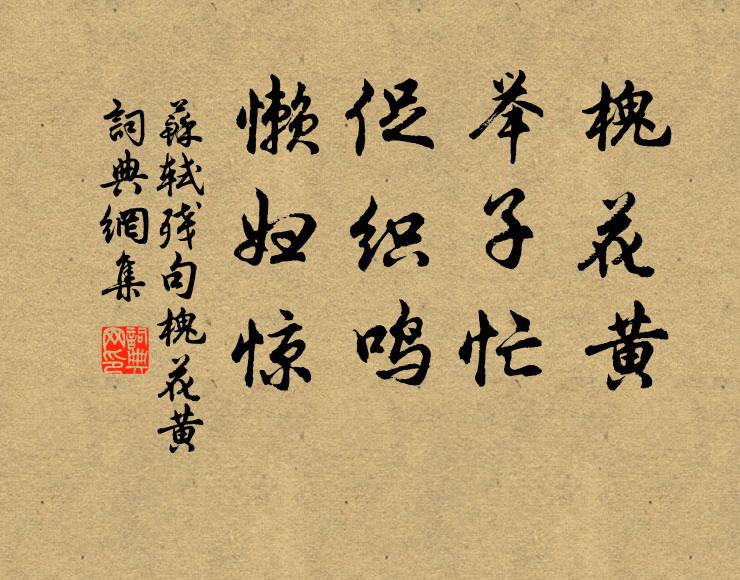 槐花黄
举子忙
促织鸣
懒妇惊
蘇轼残句槐花黄
詞典網集
詞典
网印